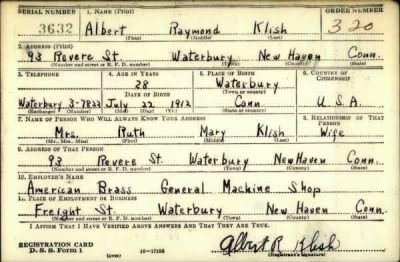 SERIAL NUMBER 1. NAME (Print) ORDER NUMBER
3632 Albert Raymond Klish 320
(First) (Middle) (Last)
2. ADDRESS (Print)
93 Revere St. Waterbury New Haven Conn.
(Number and street or R. F. D. number) (Town) (County) (State)
3. TELEPHONE 4. AGE IN YEARS 5. PLACE OF BIRTH 6. COUNTRY OF CITIZENSHIP
28 Waterbury
DATE OF BIRTH (Town or county)
Waterbury 3-7822 July 22 1912 Conn. U.S.A.
(Exchange) (Number) (Mo.) (Day) (Yr.) (State or country)
7. NAME OF PERSON WHO WILL ALWAYS KNOW YOUR ADDRESS 8. RELATIONSHIP OF THAT PERSON
Mrs. Ruth Mary Klish Wife
(Mr., Mrs., Miss) (First) (Middle) (Last)
9. ADDRESS OF THAT PERSON
93 Revere St. Waterbury New Haven Conn.
(Number and street or R. F. D. number) (Town) (County) (State)
10. EMPLOYER'S NAME
American Brass General Machine Shop
11. PLACE OF EMPLOYMENT OR BUSINESS
Freight St. Waterbury New Haven Conn.
(Number and street or R. F. D. number) (Town) (County) (State)
I AFFIRM THAT I HAVE VERIFIED ABOVE ANSWERS AND THAT THEY ARE TRUE.
REGISTRATION CARD
D. S. S. FORM 1 (over) 16-17105 Albert R. Klish
(Registrant's signature)